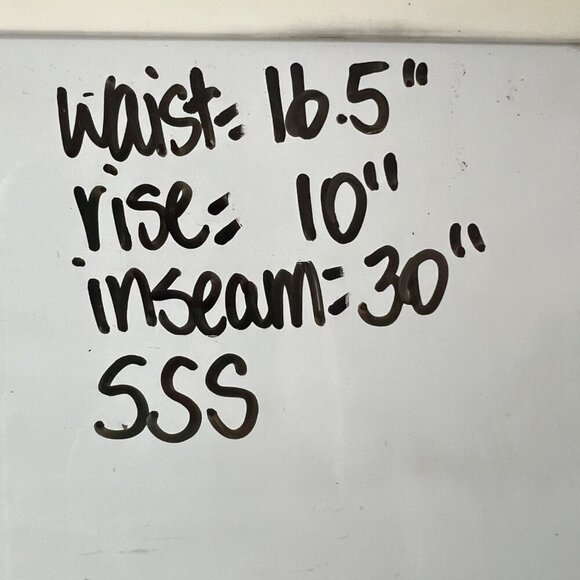 waist= 16.5"
rise= 10"
inseam=30"
SSS